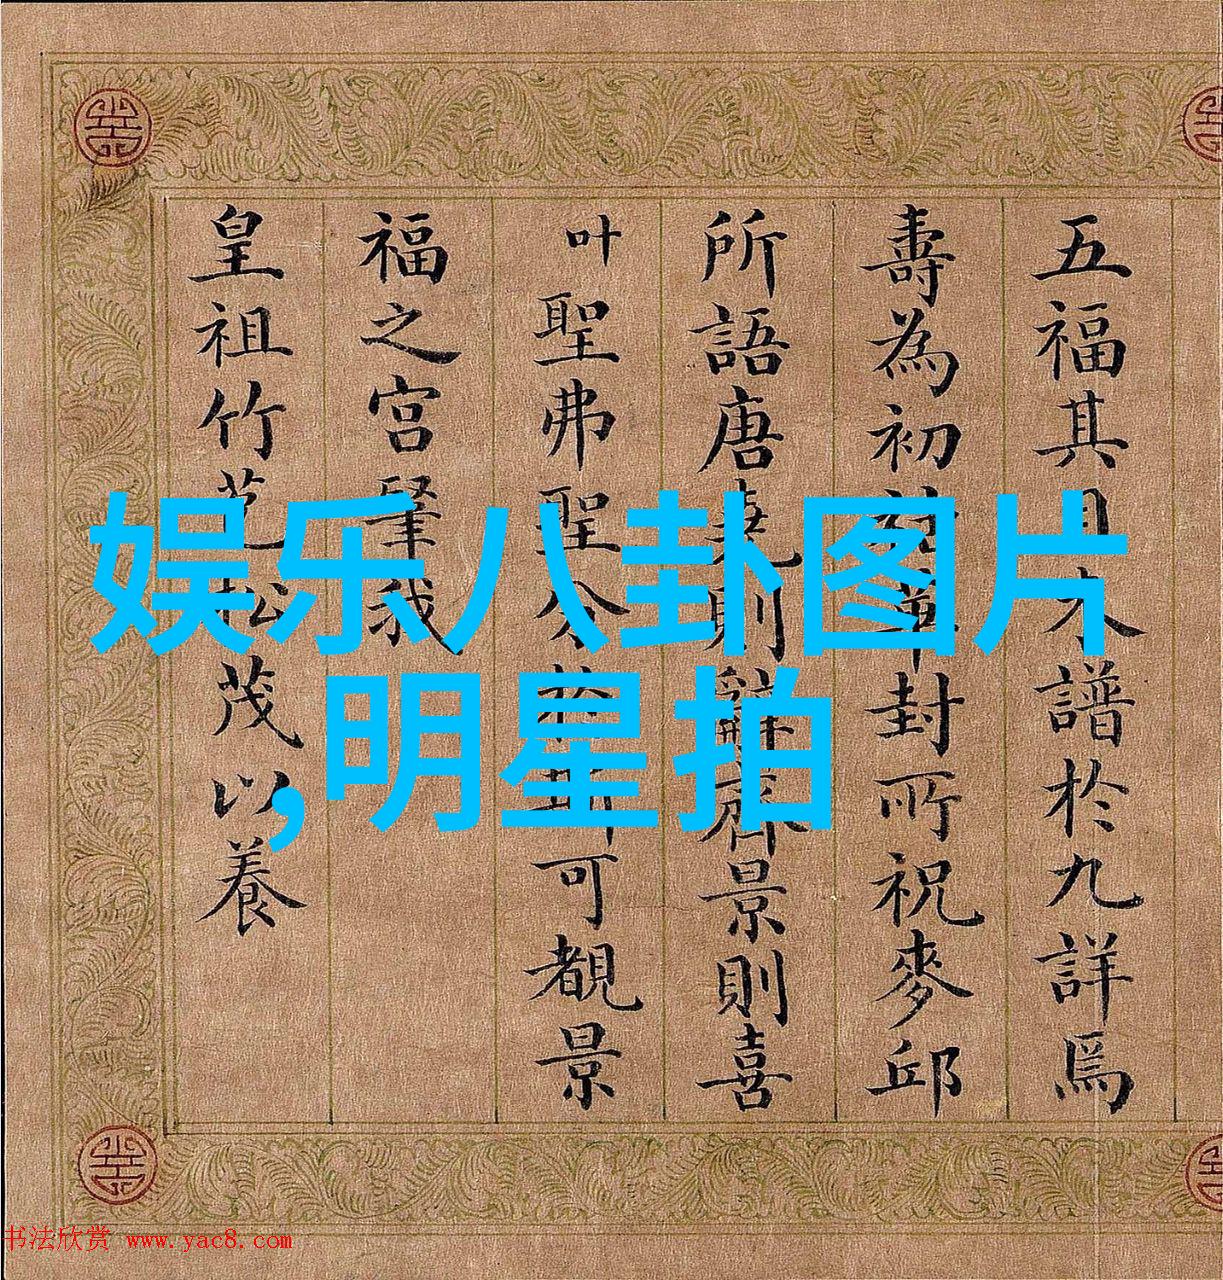 五福其目譜於九詳焉
壽為初封所祝麥邱
所語唐堯則辭齊景則喜
叶聖弗聖今於斯可覩景
福之宮肇我
皇祖竹苞松茂以養
娱乐八卦图片
,明星拍
书法欣赏 www.yac8.com